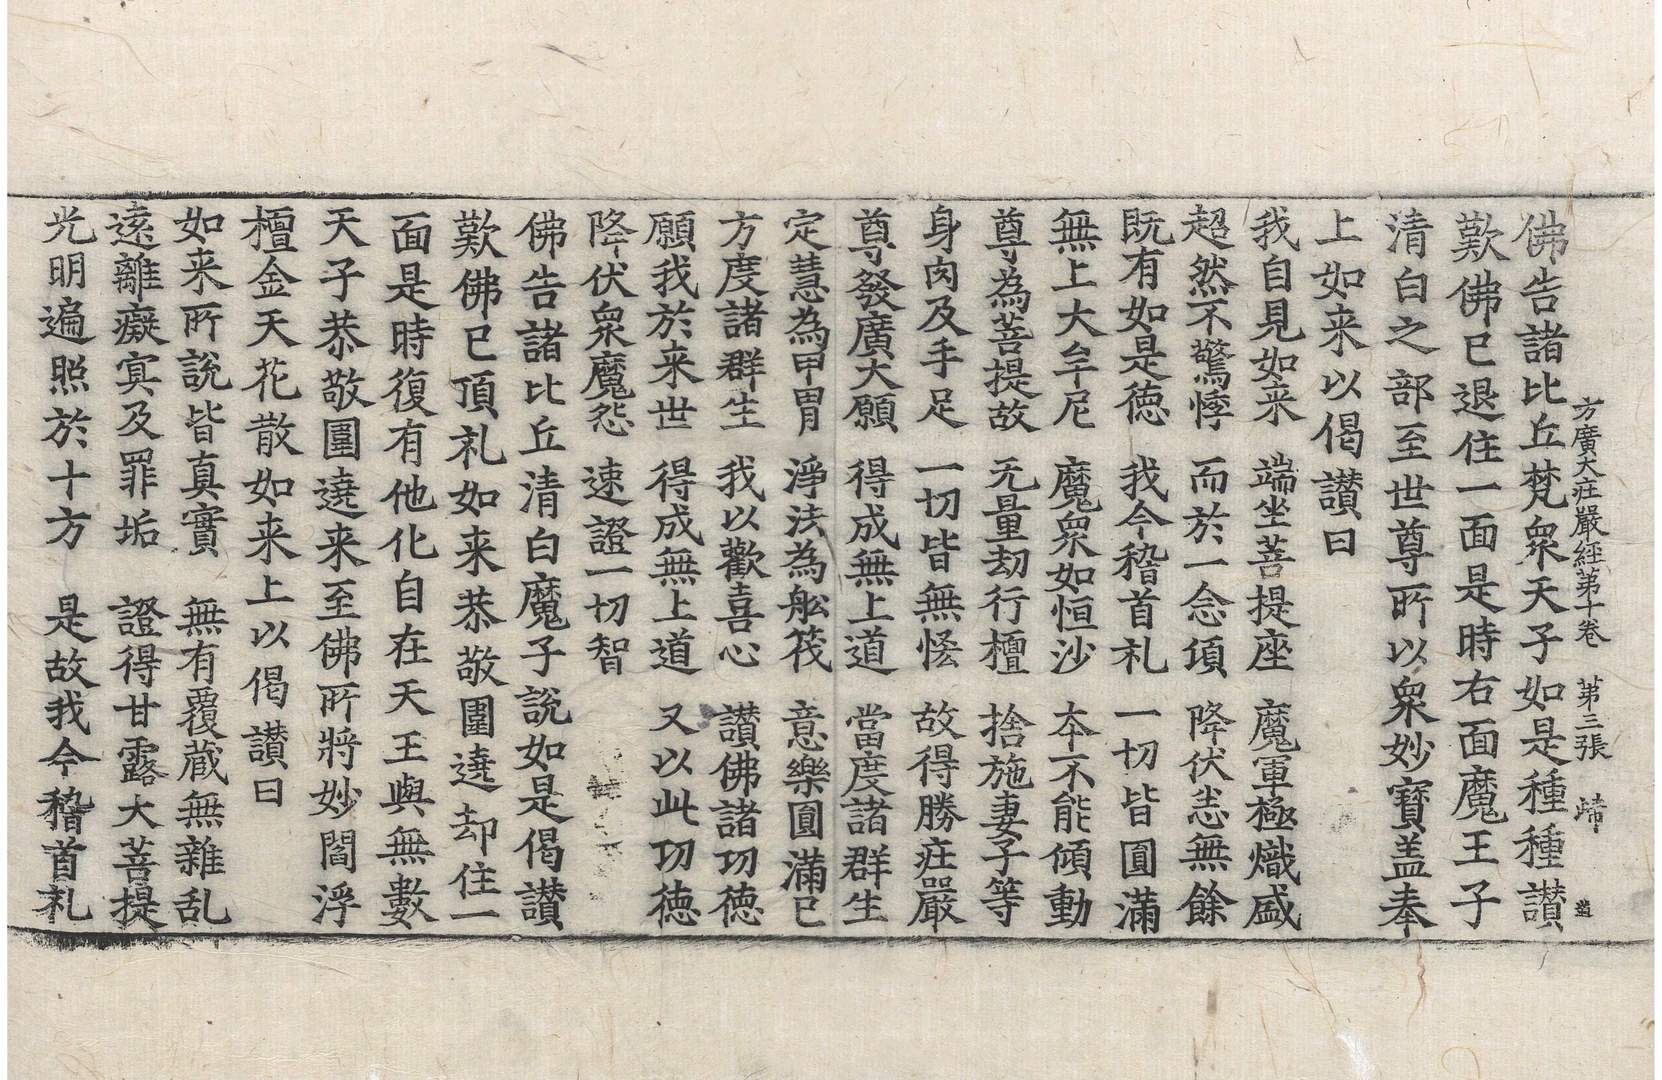 方廣大莊嚴經第十卷 第三張 歸
佛告諸比丘梵衆天子如是種種讃
歎佛已退住一面是時右面魔王子
清白之部至世尊所以衆妙寶盖奉
上如来以偈讃曰
我自見如来 端坐菩提座 魔軍極熾盛
超然不驚悸 而於一念頃 降伏恙無餘
既有如是德 我今稽首礼 一切皆圓滿
無上大牟尼 魔衆如恒沙 夲不能傾動
尊為菩提故 无量劫行檀 捨施妻子等
身肉及手足 一切皆無恡 故得勝莊嚴
尊發廣大願 得成無上道 當度諸群生
定慧為甲冑 淨法為舩筏 意樂圓滿已
方度諸群生 我以歡喜心 讃佛諸功徳
願我於来世 得成無上道 又以此功徳
降伏衆魔怨 速證一切智
佛告諸比丘清白魔子說如是偈讃
歎佛已頂礼如来恭敬圍遶却住一
面是時復有他化自在天王與無數
天子恭敬圍遶来至佛所將妙閻浮
檀金天花散如来上以偈讃曰
如来所說皆真實 無有覆蔵無雜乱
遠離癡㝠及罪垢 證得甘露大菩提
光明遍照於十方 是故我今稽首礼